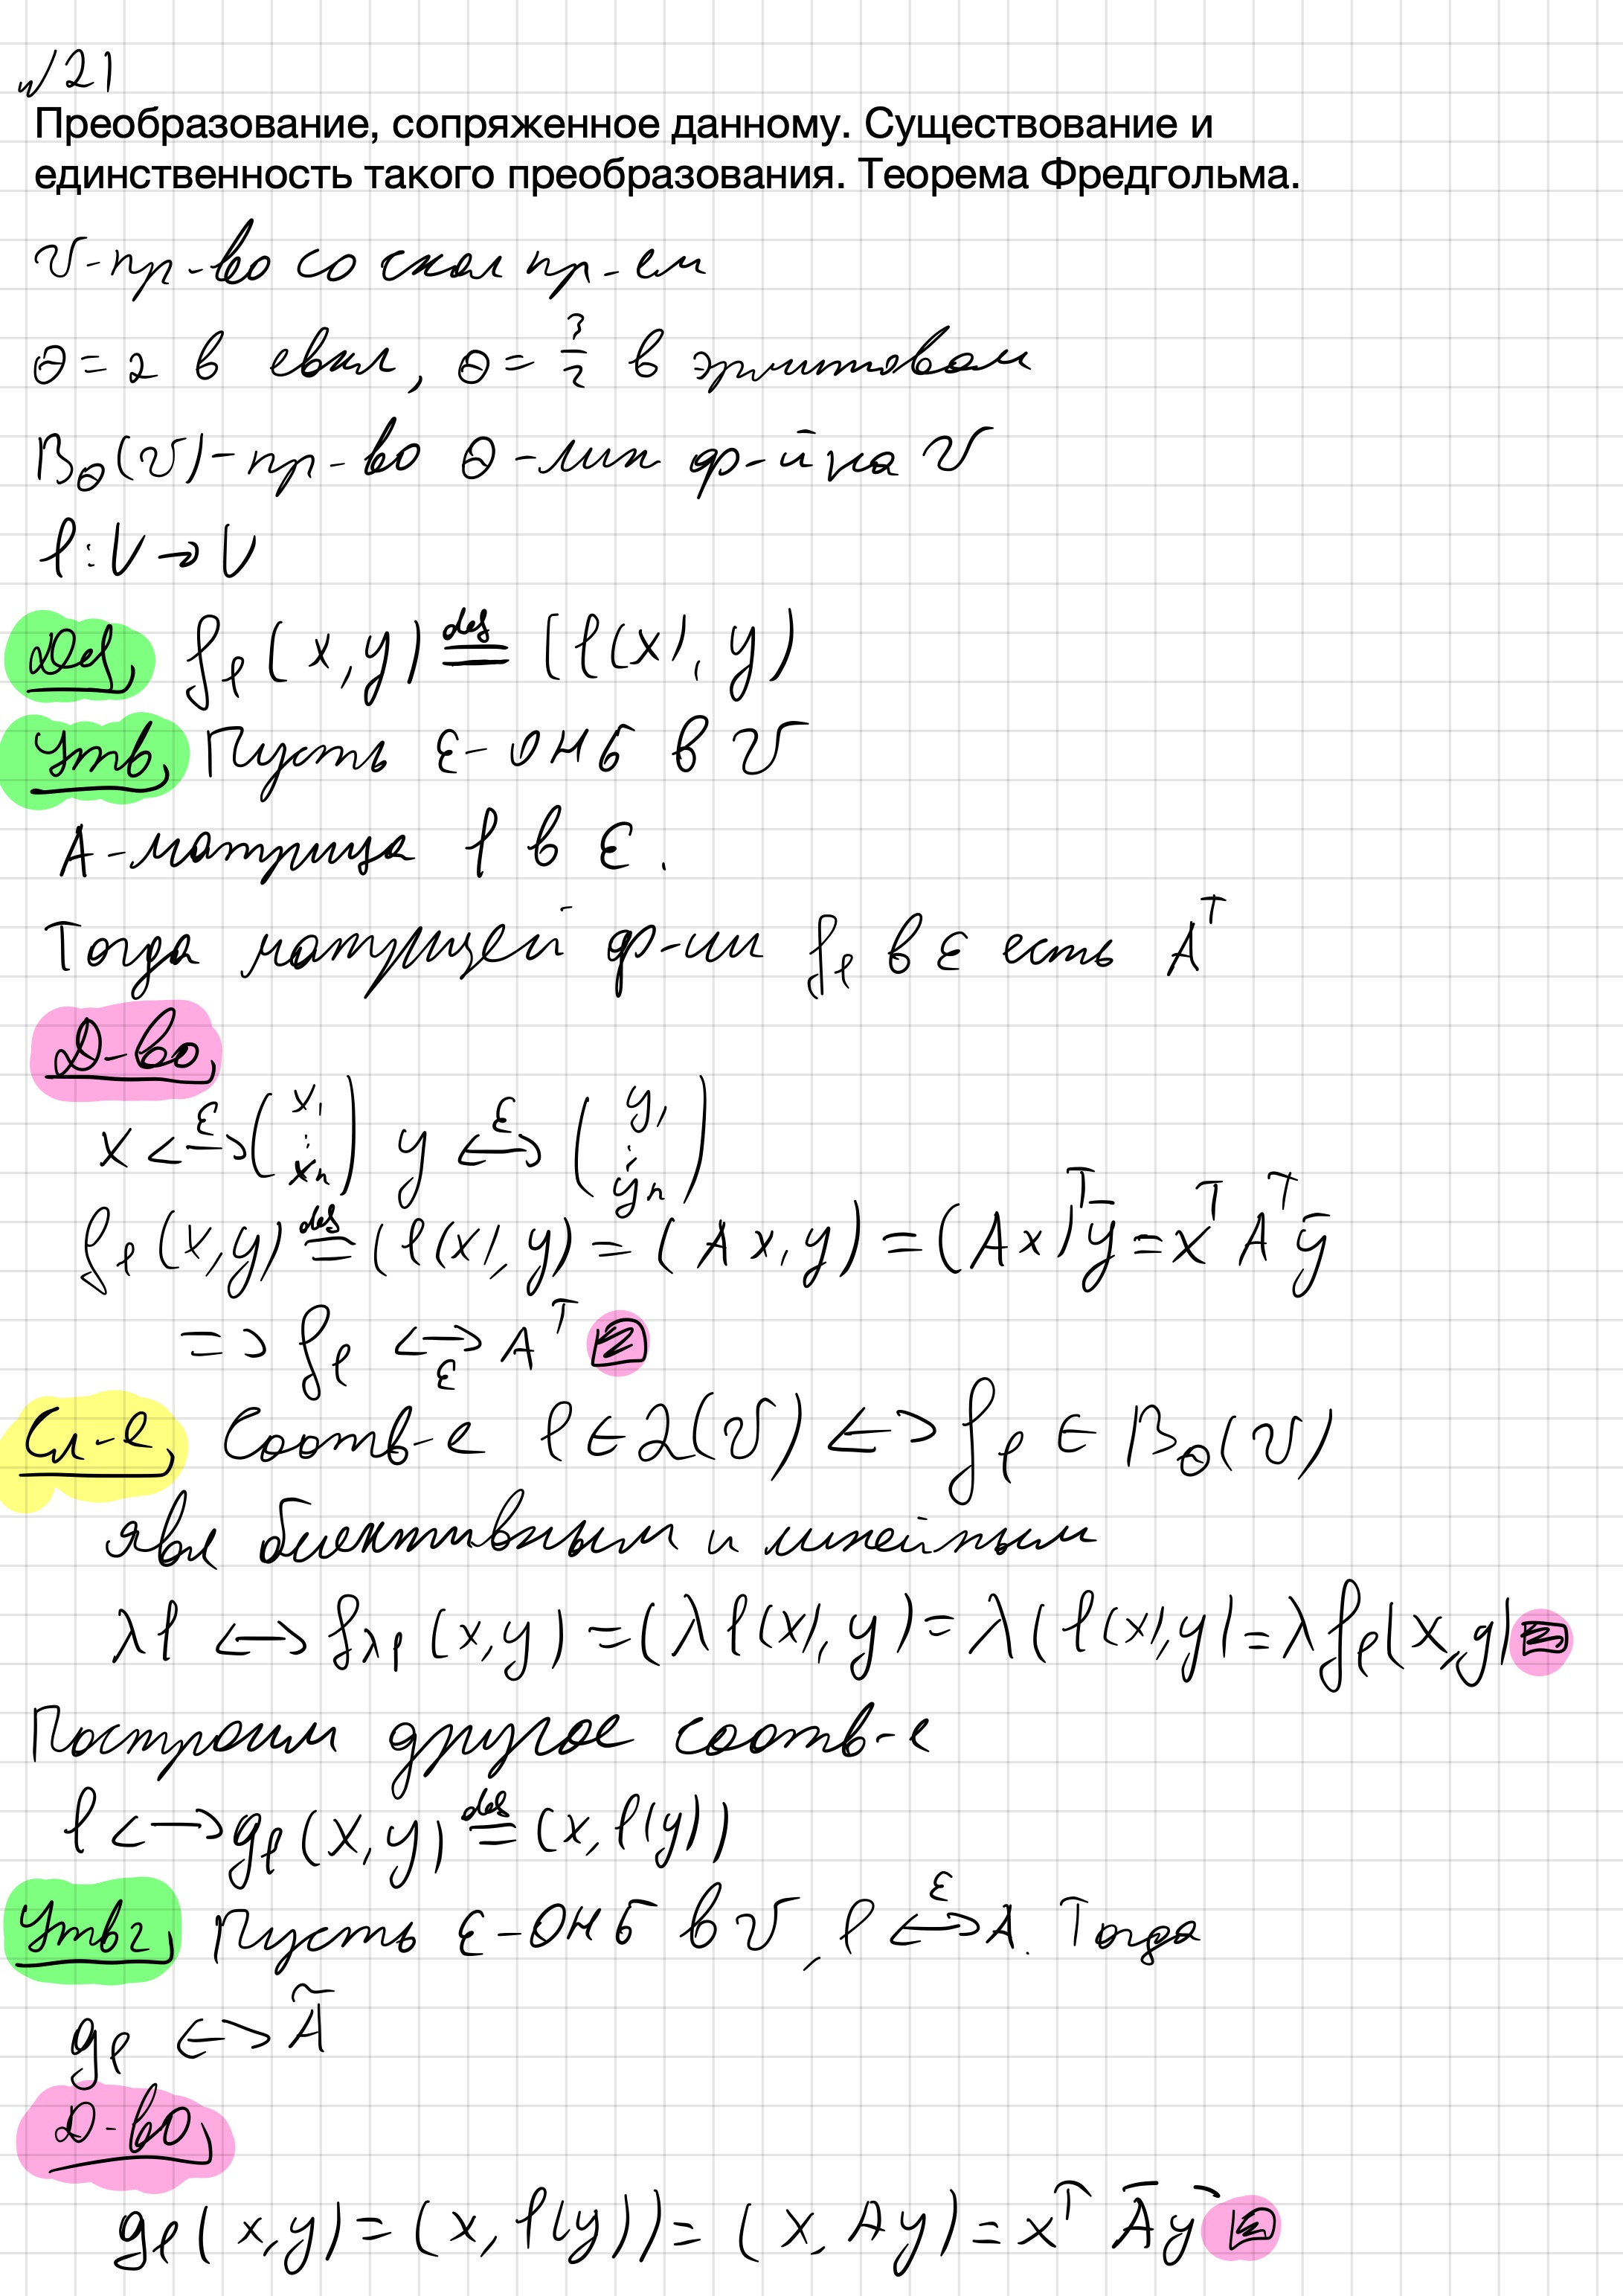 №21
Преобразование, сопряженное данному. Существование и
единственность такого преобразования. Теорема Фредгольма.
V-пр-во со скал пр-ем
θ = 2 в евкл, θ = 3/2 в эрмитовом
B_θ(V)-пр-во θ-лин ф-й на V
φ: V → V
Def, f_φ(x, y) def= (φ(x), y)
Утв, Пусть ε-ОНБ в V
A-матрица φ в ε.
Тогда матрицей ф-ии f_φ в ε есть A^T
Д-во,
x <-ε-> (x₁ ⋮ xₙ) y <-ε-> (y₁ ⋮ yₙ)
f_φ(x, y) def= (φ(x), y) = (Ax, y) = (Ax)^T ȳ = x^T A^T ȳ
=> f_φ <-ε-> A^T
Сл-е, Соотв-е φ ∈ L(V) <-> f_φ ∈ B_θ(V)
явл биективным и линейным
λφ <-> f_λφ(x, y) = (λφ(x), y) = λ(φ(x), y) = λf_φ(x, y)
Построим другое соотв-е
φ <-> g_φ(x, y) def= (x, φ(y))
Утв2, Пусть ε-ОНБ в V, φ <-ε-> A. Тогда
g_φ <-> Ã
Д-во,
g_φ(x, y) = (x, φ(y)) = (x, Ay) = x^T Ā ȳ